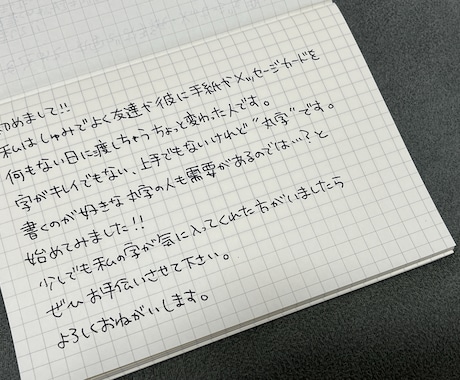 初めまして!!
私はしゅみでよく友達や彼に手紙やメッセージカードを
何もない日に渡しちゃうちょっと変わった人です。
字がキレイでもない、上手でもないけれど"丸字"です。
書くのが好きな丸字の人も需要があるのでは…?と
始めてみました!!
少しでも私の字が気に入ってくれた方がいましたら
ぜひお手伝いさせて下さい。
よろしくおねがいします。